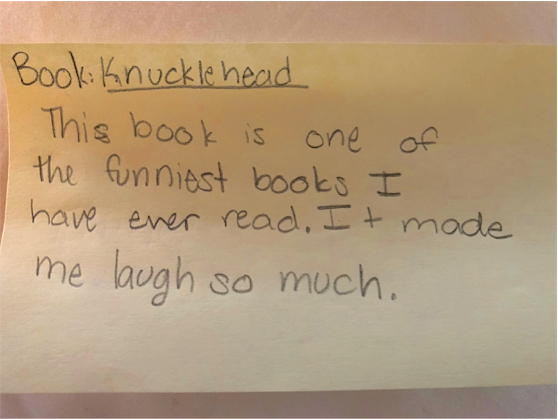 Book: Knucklehead
This book is one of
the funniest books I
have ever read. It made
me laugh so much.